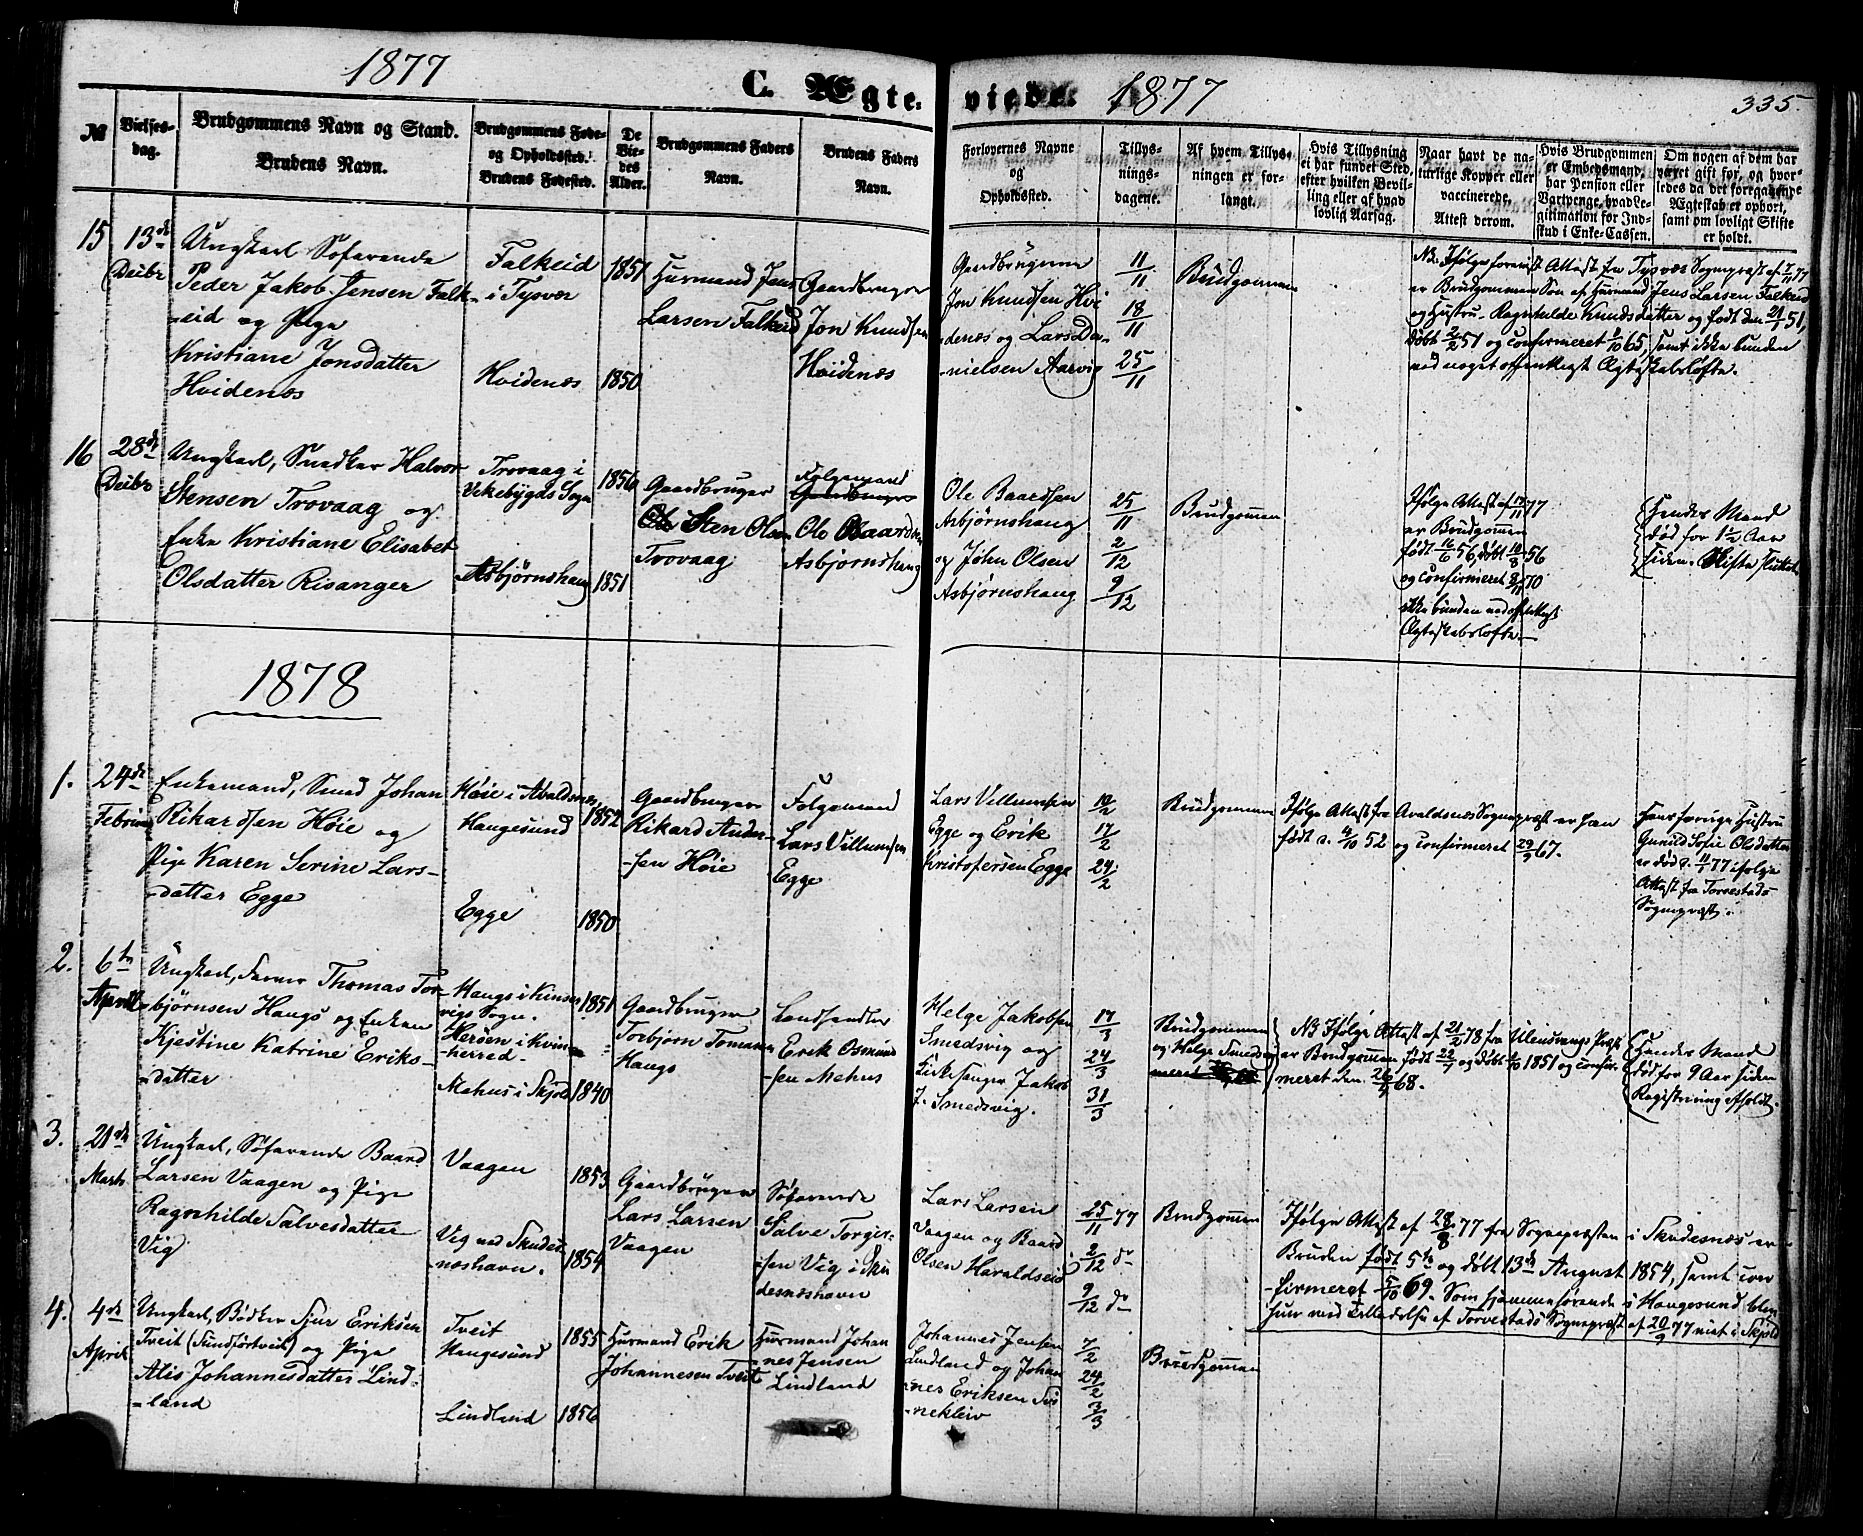 1877
C. Ægte-
viede.
1877
335.
№
Vielses-
dag.
Brudgommens Navn og Stand.
Brudens Navn.
Brudgommens Føde-
og Opholdssted.
Brudens Fødested.
De
Vie-
des
Alder.
Brudgommens Faders
Navn.
Brudens Faders
Navn.
Forlovernes Navne
og
Opholdssted.
Tillys-
nings-
dagene.
Af hvem Tillys-
ningen er for-
langt.
Hvis Tillysning
ei har fundet Sted,
efter hvilken Bevil-
ling eller af hvad
lovlig Aarsag.
Naar havt de na-
turlige Kopper eller
vaccinerede,
Attest derom.
Hvis Brudgommen
er Embedsmand,
har Pension eller
Vartpenge, hvad Le-
gitimation for Ind-
skud i Enke-Cassen.
Om nogen af dem har
været gift før, og hvor-
ledes da det foregaaende
Ægteskab er ophørt,
samt om lovligt Skifte
er holdt.
15
13de
Decbr
Ungkarl Søfarende
Peder Jakob Jensen Falk-
-eid og Pige
Kristiane Jonsdatter
Hvidenæs
Falkeid
i Tysvær
Hvidenæs
1851
1850
Huusmand Jens
Larsen Falkeid
Gaardbruger
Jon Knudsen
Hvidenæs
Gaardbrugerne
Jon Knudsen Hvi
-denæs og Lars Da-
-nielsen Aarvig
11/11
18/11
25/11
Brudgommen
NB. Ifølge foreviist Attest fra Tysvær Sognepræst af
er Brudgommen Søn af Huusmand Jens Larsen Falkeid
og Hustru Ragnhilde Knudsdatter og født den 21/1 51,
døbt 2/2 51 og confirmeret 1/10 65, samt ikke bunden
ved noget offentligt Ægteskabsløfte.
16
28de
Decbr
Ungkarl, Snedker Halvor
Stensen Trovaag og
Enke Kristiane Elisabet
Olsdatter Risanger
Trovaag i
Vikebygds Sogn
Asbjørnshaug
1856
1851
Gaardbruger
Ole Sten Olsen
Trovaag
Folgemand
Gaardbruger
Ole Baardsen
Asbjørnshaug
Ole Baardsen
Asbjørnshaug
og John Olsen
Asbjørnshaug
25/11
2/12
9/12
Brudgommen
Ifølge Attest af 17/11 77
er Brudgommen
født 16/6 56, døbt 10/8 56
og confirmeret 8/11 70
ikke bunden ved offentligt
Ægteskabsløfte.
Hendes Mand
død for 1½ Aar
siden. Skifte sluttet
1878
1.
24de
Februar
Enkemand, Smed Johan
Rikardsen Høie og
Pige Karen Serine Lars-
-datter Egge
Høie i Avaldsnæs
Haugesund
Egge
1852
1850
Gaardbruger
Rikard Ander-
-sen Høie
Folgemand
Lars Villumsen
Egge
Lars Villumsen
Egge og Erik
Kristofersen Egge
10/2
17/2
24/2
Brudgommen
Ifølge Attest fra Avaldsnæs Sognepræst er han
født d. 4/10 52 og confirmeret 29/9 67.
Hans forrige Hustru
Gunild Sofie Olsdatter
er død d. 11/1 77 ifølge
Attest fra Torvestads
Sognepræst.
2.
6te
April
Ungkarl, Farver Thomas Tor-
-bjørnsen Haugs og Enken
Kjestine Katrine Eriks-
-datter
Haugs i Kinser
vigs Sogn.
Herøen i Kvin
herred
Mehus i Skjold
1851
1840
Gaardbruger
Torbjørn Tomassen
Haugs
Landhandler
Erik Osmund
-sen Mehus
Helge Jakobsen
Smedsvig og
Kirkesanger Jakob
J. Smedsvig.
17/3
24/3
31/3
Brudgommen
og Helge Smedsvig
NB Ifølge Attest af 21/2 78 fra Ullensvangs Præst
er Brudgommen født 22/7 og døbt 1851 og confir
meret den 26/4 68.
Hendes Mand
død for 9 Aar siden
Registrering afholdt.
3.
21de
Marts
Ungkarl, Søfarende Baard
Larsen Vaagen og Pige
Ragnhilde Salvesdatter
Vig
Vaagen
Vig ved Skudes-
-næshavn.
1853
1854
Gaardbruger
Lars Larsen
Vaagen
Søfarende
Salve Torger-
-sen Vig i Sku
desnæshavn
Lars Larsen
Vaagen og Baard
Olsen Haraldseid
25/11 77
2/12 do
9/12 do
Brudgommen
Ifølge Attest af 28/8 77 fra Sognepræsten i Skudesnæs er
Bruden født 5te og døbt 13de August 1854, samt con
-firmeret 5/10 69. Som hjemmehørende i Haugesund blev
hun med Tilladelse af Torvestads Sognepræst af 20/9 77 viet i Skjold
4.
4de
April
Ungkarl, Bødker Sjur Eriksen
Tveit (Sundførtveit) og Pige
Alis Johannesdatter Lind-
-land
Tveit
Haugesund
Lindland
1855
1856
Huusmand Erik
Johannesen Tveit
Huusmand Johan
nes Jensen
Lindland
Johannes Jensen
Lindland og Johan
-nes Eriksen Svi
-nekleiv
7/2
24/2
3/3
Brudgommen